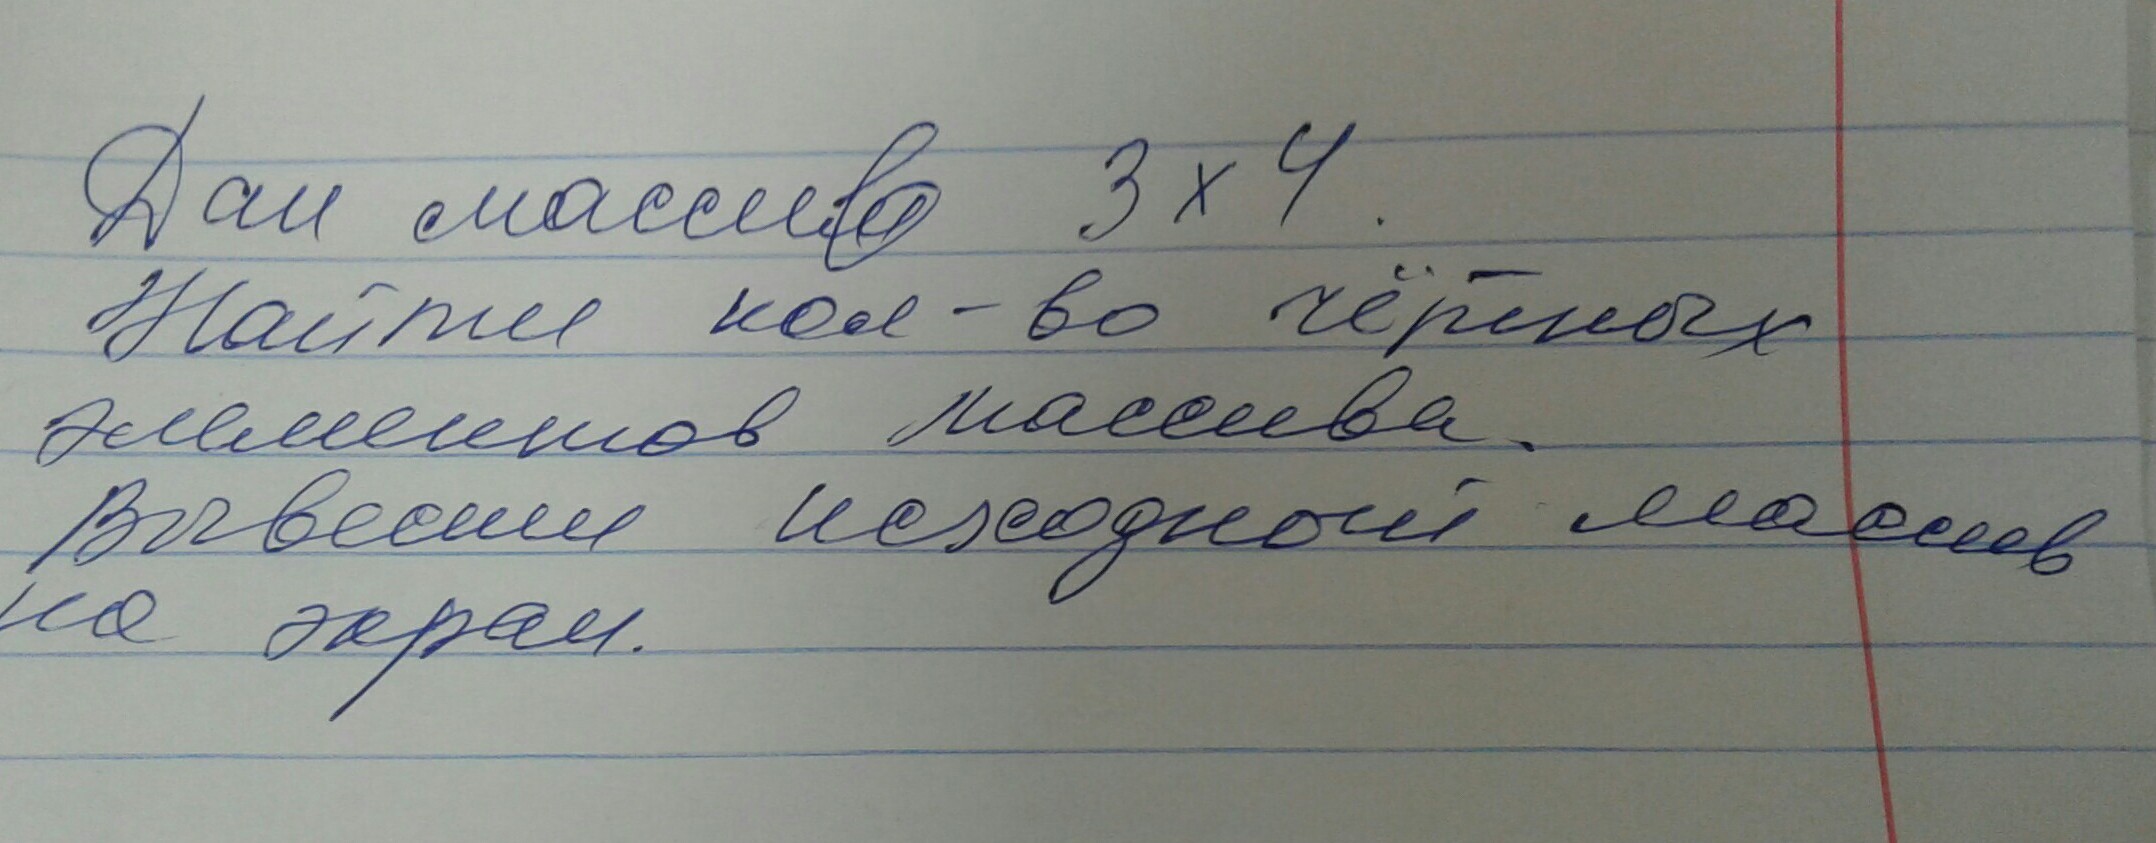 Дан массив 3 x 4.
Найти кол-во чётных
элементов массива.
Вывести исходный массив
на экран.